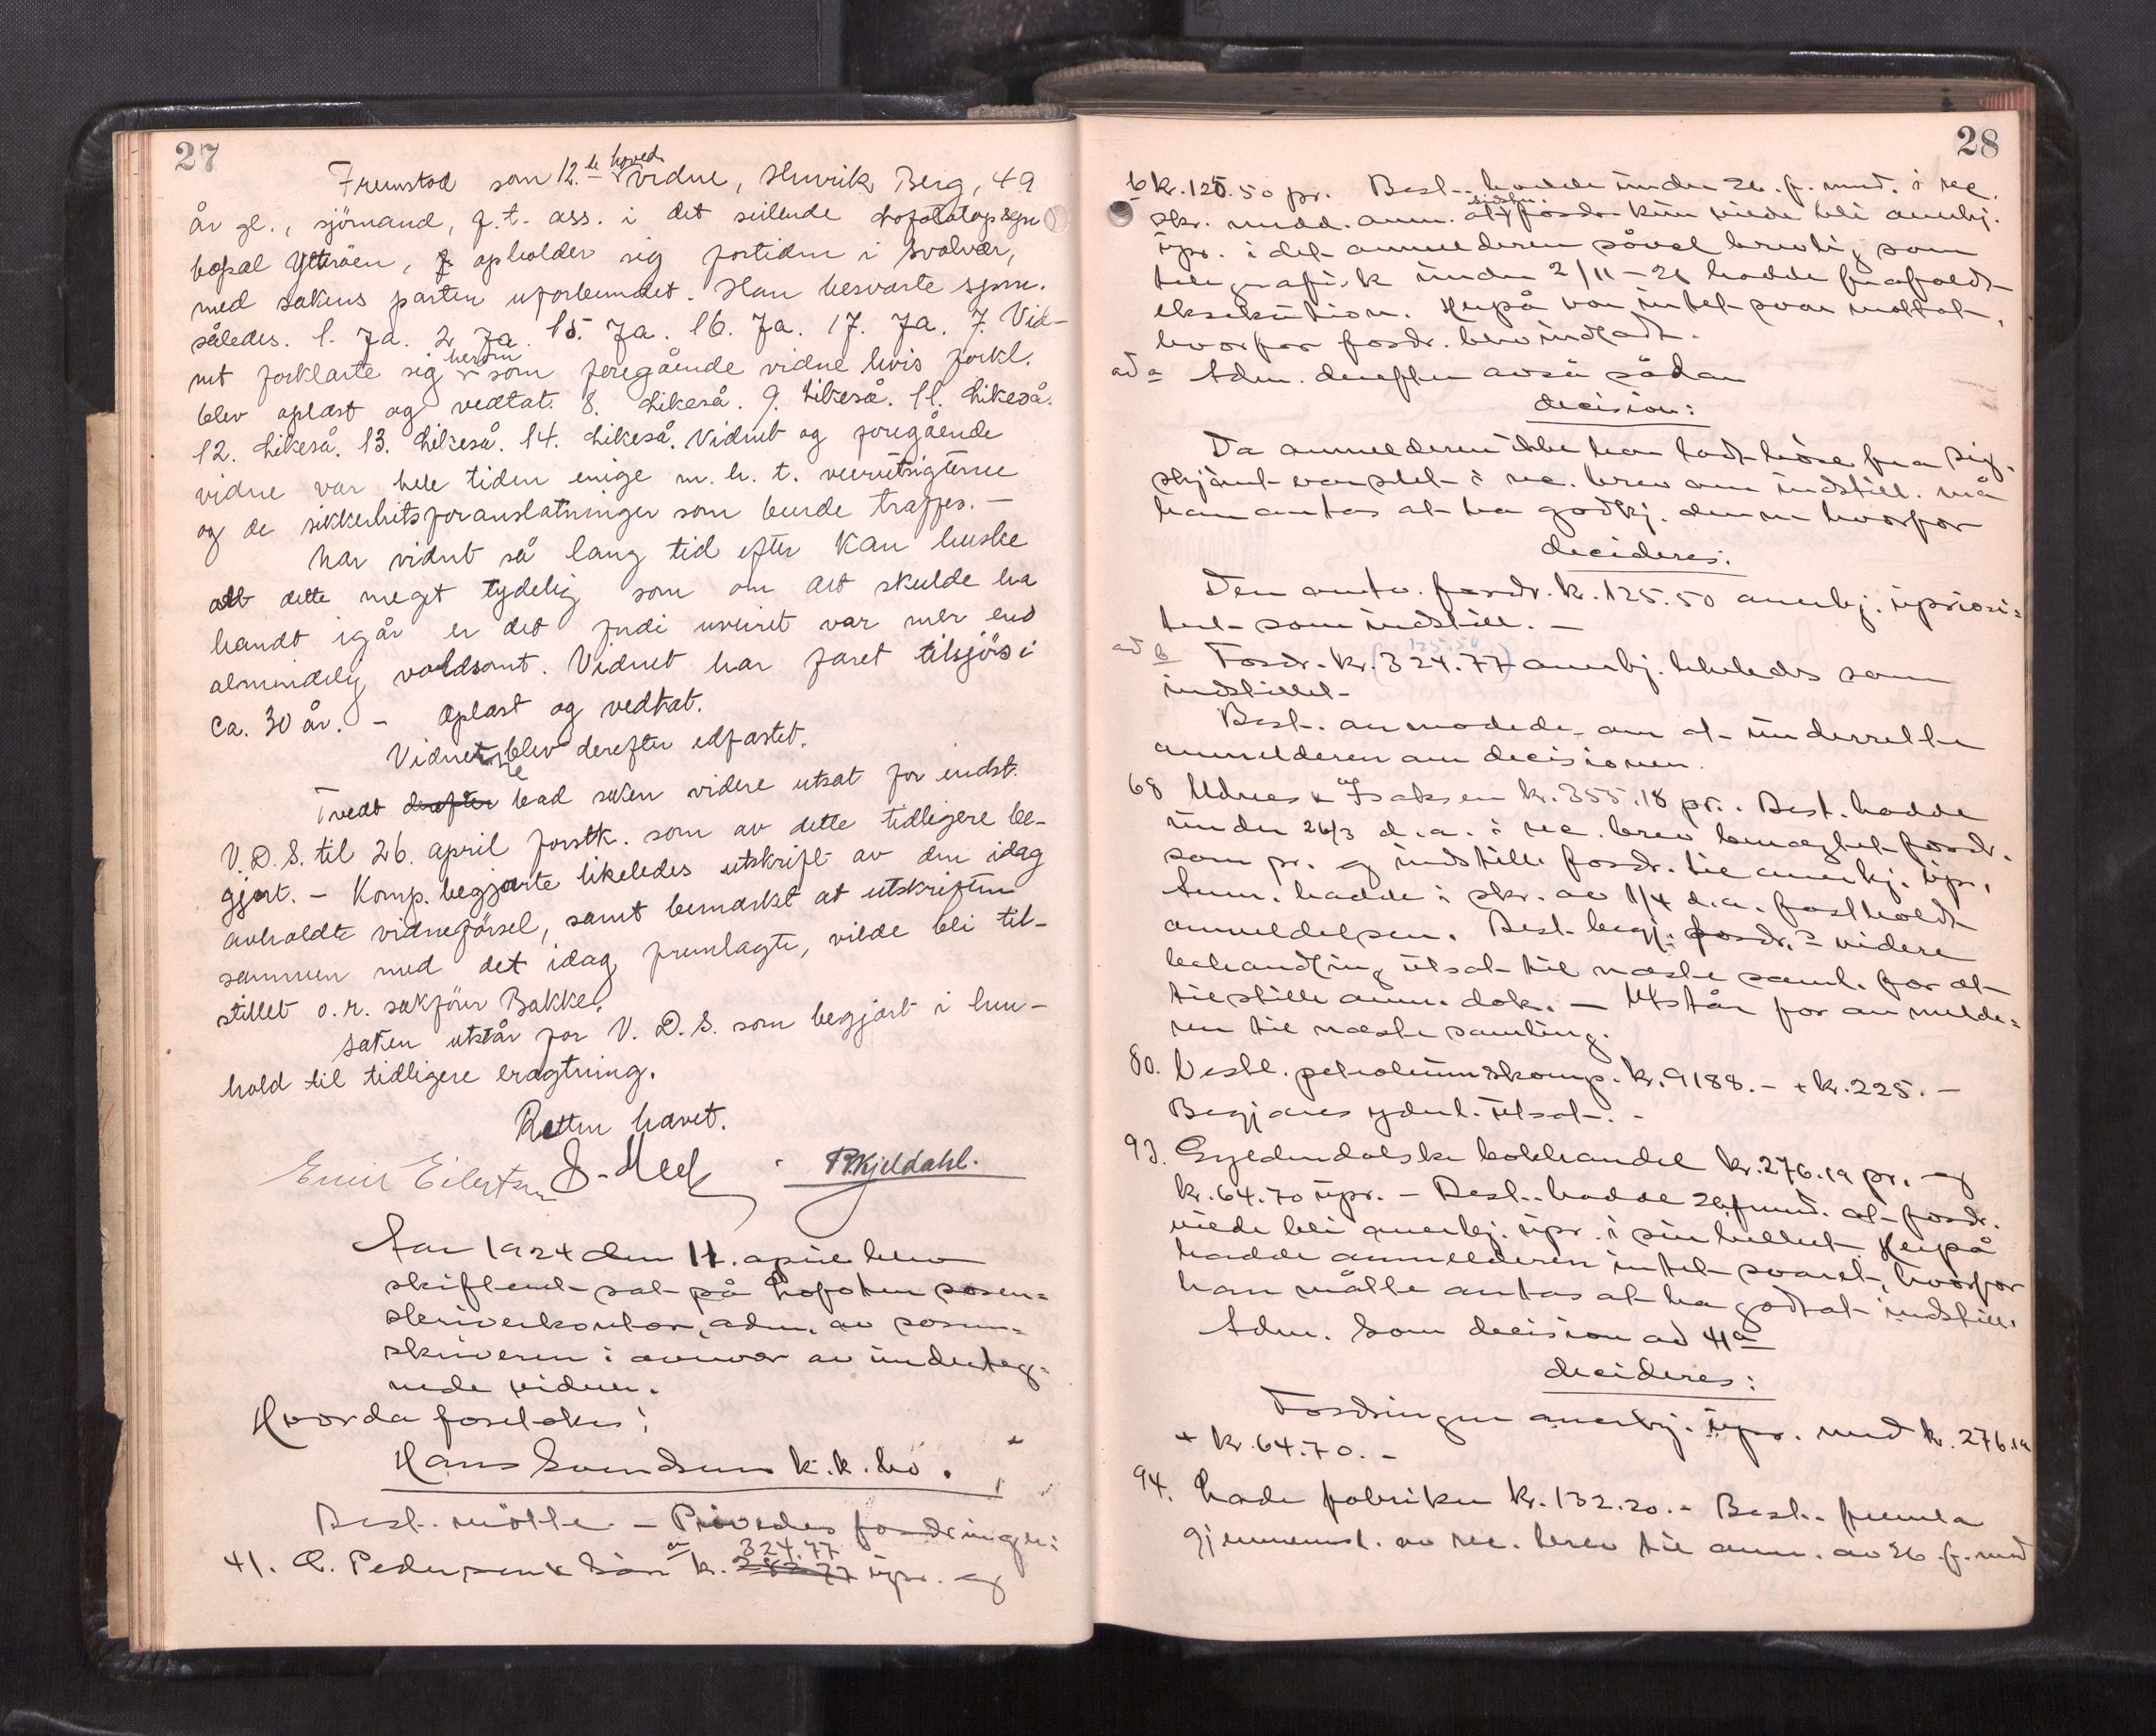 27
Fremstod som 12.te hoved vidne, Henrik Berg, 49
år gl., sjömand, f.t. ass. i det seilende Lofotopsyn
bopæl Ytteröen, opholder sig fortiden i Svolvær,
med sakens parter uforbundet. Han besvarte spm.
således. 1. Ja. 2. Ja. 15. Ja. 16. Ja. 17. Ja. 7. Vid-
net forklarte sig herom som foregående vidne hvis forkl.
blev oplæst og vedtat. 8. Likeså. 9. Likeså. 11. Likeså.
12. Likeså. 13. Likeså. 14. Likeså. Vidnet og foregående
vidne var hele tiden enige m. h. t. veirutsigterne
og de sikkerhetsforanstaltninger som burde træffes. –
Når vidnet så lang tid efter kan huske
alt dette meget tydelig som om det skulde ha
hændt igår er det fordi uveiret var mer end
almindelig voldsomt. Vidnet har faret tilsjös i
ca. 30 år. – Oplæst og vedtat.
Vidnerne blev derefter edfæstet.
Tvedt derefter bad saken videre utsat for indst.
V. D. S. til 26. april førstk. som av dette tidligere be-
gjært. – Komp. begjærte likeledes utskrift av den idag
avholdte vidneförsel, samt bemærket at utskriften
sammen med det idag fremlagte, vilde bli til-
stillet o. r. sakförer Bakke.
Saken utstår for V. D. S. som begjært i hen-
hold til tidligere eragtning.
Retten hævet.
Emil Eilertsen PKjeldahl.
Aar 1924 den 11. april blev
skifteret sat på Lofoten soren-
skriverkontor, adm. av soren-
skriveren i overvær av underteg-
nede vidner.
Hvorda foretokes:
Hans Svendsens k.k. bo.
Best. mötte. – Prövedes fordringer:
41. O. Pedersen & Sön a kr. 324.77 upr. og
28
b kr. 125.50 pr. Best. hadde under 26. f. mnd. i rec.
skr. medd. anm. at sidstn. fordr. kun vilde bli anerkj.
upr. idet anmelderen såvel brevlig som
telegrafisk under 2/11-21 hadde frafaldt
eksekution. Herpå var intet svar mottat,
hvorfor fordr. blev indtadt.
ad a Adm. derefter avsa sådan
decision:
Da anmelderen ikke har ladt höre fra sig,
skjönt varslet i rec. brev om indstill. må
han antas at ha godkj. denne hvorfor
decideres:
Den omtv. fordr. kr. 125.50 anerkj. upriori-
tert som indstill. –
ad b Fordr. kr. (324.77) 125.50 anerkj. likeledes som
indstillet.
Best. anmodede om at underrette
anmelderen om decisionen.
68 Udnes & Isaksen kr. 355.18 pr. Best. hadde
under 26/3 d. a. i rec. brev benegtet fordr.
som pr. og indstille fordr. til anerkj. upr.
Anm. hadde i skr. av 1/4 d.a. fastholdt
anmeldelsen. Best. begj. fordr.s videre
behandling utsat til næste saml. for at
tilstille anm. dok. – Utstår for anmelde-
ren til næste samling.
80. Vestl. petroleumskomp. kr. 9188.- + kr. 225. –
Begjæres yderl. utsat. –
93. Gyldendalske bokhandel kr. 276.19 pr. og
kr. 64.70 upr. – Best. hadde 26 f. mnd. at fordr.
vilde bli anerkj. upr. i sin helhet. Herpå
hadde anmelderen intet svaret, hvorfor
han måtte antas at ha godtat indstill.
Adm. Som decision ad 41 a
decideres:
Fordringen anerkj. upr. med kr. 276.19
+ kr. 64.70. –
94. Lade fabriker kr. 132.20. – Best. fremla
gjennemsl. av rec. brev til anm. av 26. f. mnd